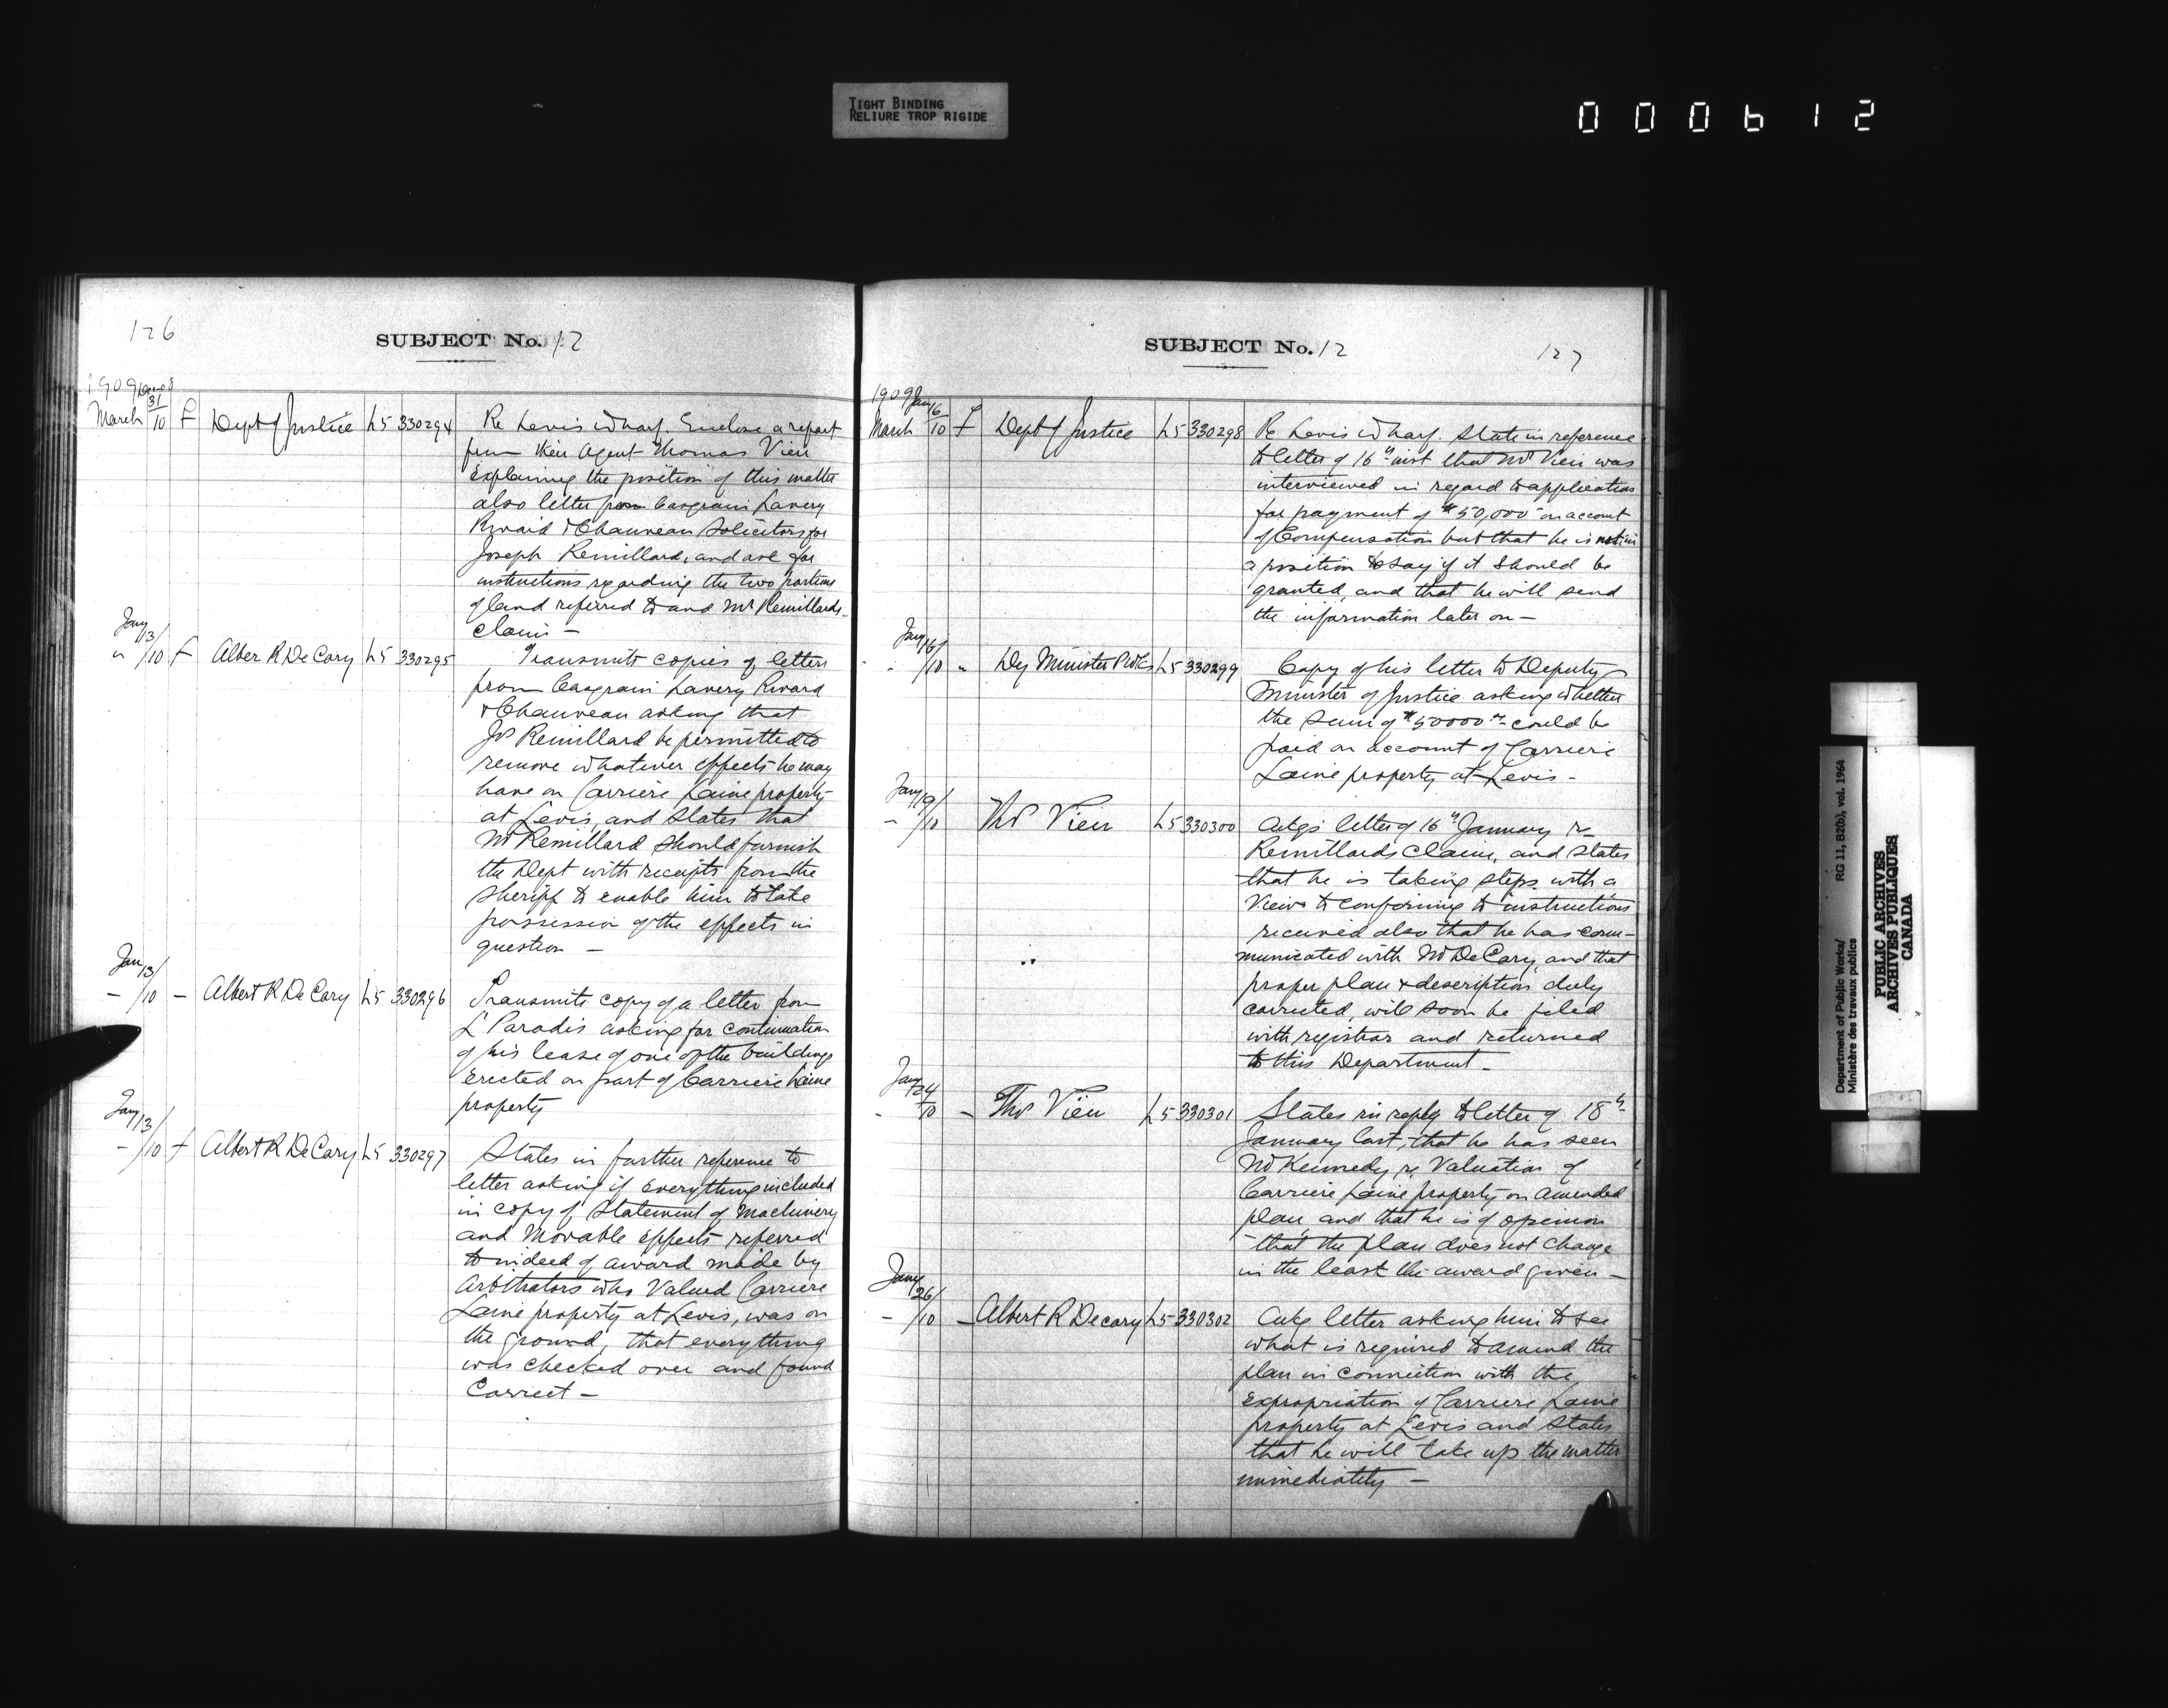 TIGHT BINDING
RELIURE TROP RIGIDE
000612
126
SUBJECT No. 12
1909 Dec 08
March 31/10 f Dept of Justice L5 330294
Re Levis Wharf. Enclose a report
from their agent Thomas Vien
explaining the position of this matter
also letter from Casgrain Lavery
Rivard & Chauveau Solicitors for
Joseph Remillard, and ask for
instructions regarding the two portions
of land referred to and Mr Remillards
claim —
Jany 13/
" /10 f Alber R DeCary L5 330295
Transmits copies of letters
from Casgrain Lavery Rivard
& Chauveau asking that
Js Remillard be permitted to
remove whatever effects he may
have on Carriere Laine property
at Levis, and States that
Mr Remillard should furnish
the Dept with receipts from the
Sheriff to enable him to take
possession of the effects in
question —
Jan 13/
— /10 — Albert R DeCary L5 330296
Transmits copy of a letter from
L' Paradis asking for continuation
of his lease of one of the buildings
erected on part of Carriere Laine
property
Jany 13/
— /10 f Albert R DeCary L5 330297
States in further reference to
letter asking if everything included
in copy of Statement of Machinery
and Movable effects referred
to in deed of award made by
Arbitrators who Valued Carriere
Laine property at Levis, was on
the ground, that everything
was checked over and found
Correct —
SUBJECT No. 12
127
1909 Jany 16
March /10 f Dept of Justice L5 330298
Re Levis Wharf. State in reference
to letter of 16th inst that Mr Vien was
interviewed in regard to application
for payment of $50,000 on account
of Compensation but that he is not in
a position to say if it should be
granted, and that he will send
the information later on —
Jany 16/
" /10 " Dy Minister PWks L5 330299
Copy of his letter to Deputy
Minister of Justice asking whether
the Sum of $50000 could be
paid on account of Carriere
Laine property at Levis —
Jany 19/
— /10 Ths Vien L5 330300
Ackgs letter of 16th January re
Remillards Claim, and States
that he is taking steps with a
View to conforming to instructions
received also that he has com-
municated with Mr DeCary, and that
proper plan & description duly
corrected, will soon be filed
with registrar and returned
to this Department —
Jany 24
— /10 — Ths Vien L5 330301
States in reply to letter of 18th
January last, that he has seen
Mr Kennedy re Valuation of
Carriere Laine property on amended
plan, and that he is of opinion
that the plan does not change
in the least the award given —
Jany 26/
— /10 — Albert R Decary L5 330302
Ackg letter asking him to see
what is required to amend the
plan in connection with the
expropriation of Carriere Laine
property at Levis and States
that he will take up the matter
immediately —
Department of Public Works/ RG 11, B2(b), vol. 1964
Ministère des travaux publics
PUBLIC ARCHIVES
ARCHIVES PUBLIQUES
CANADA